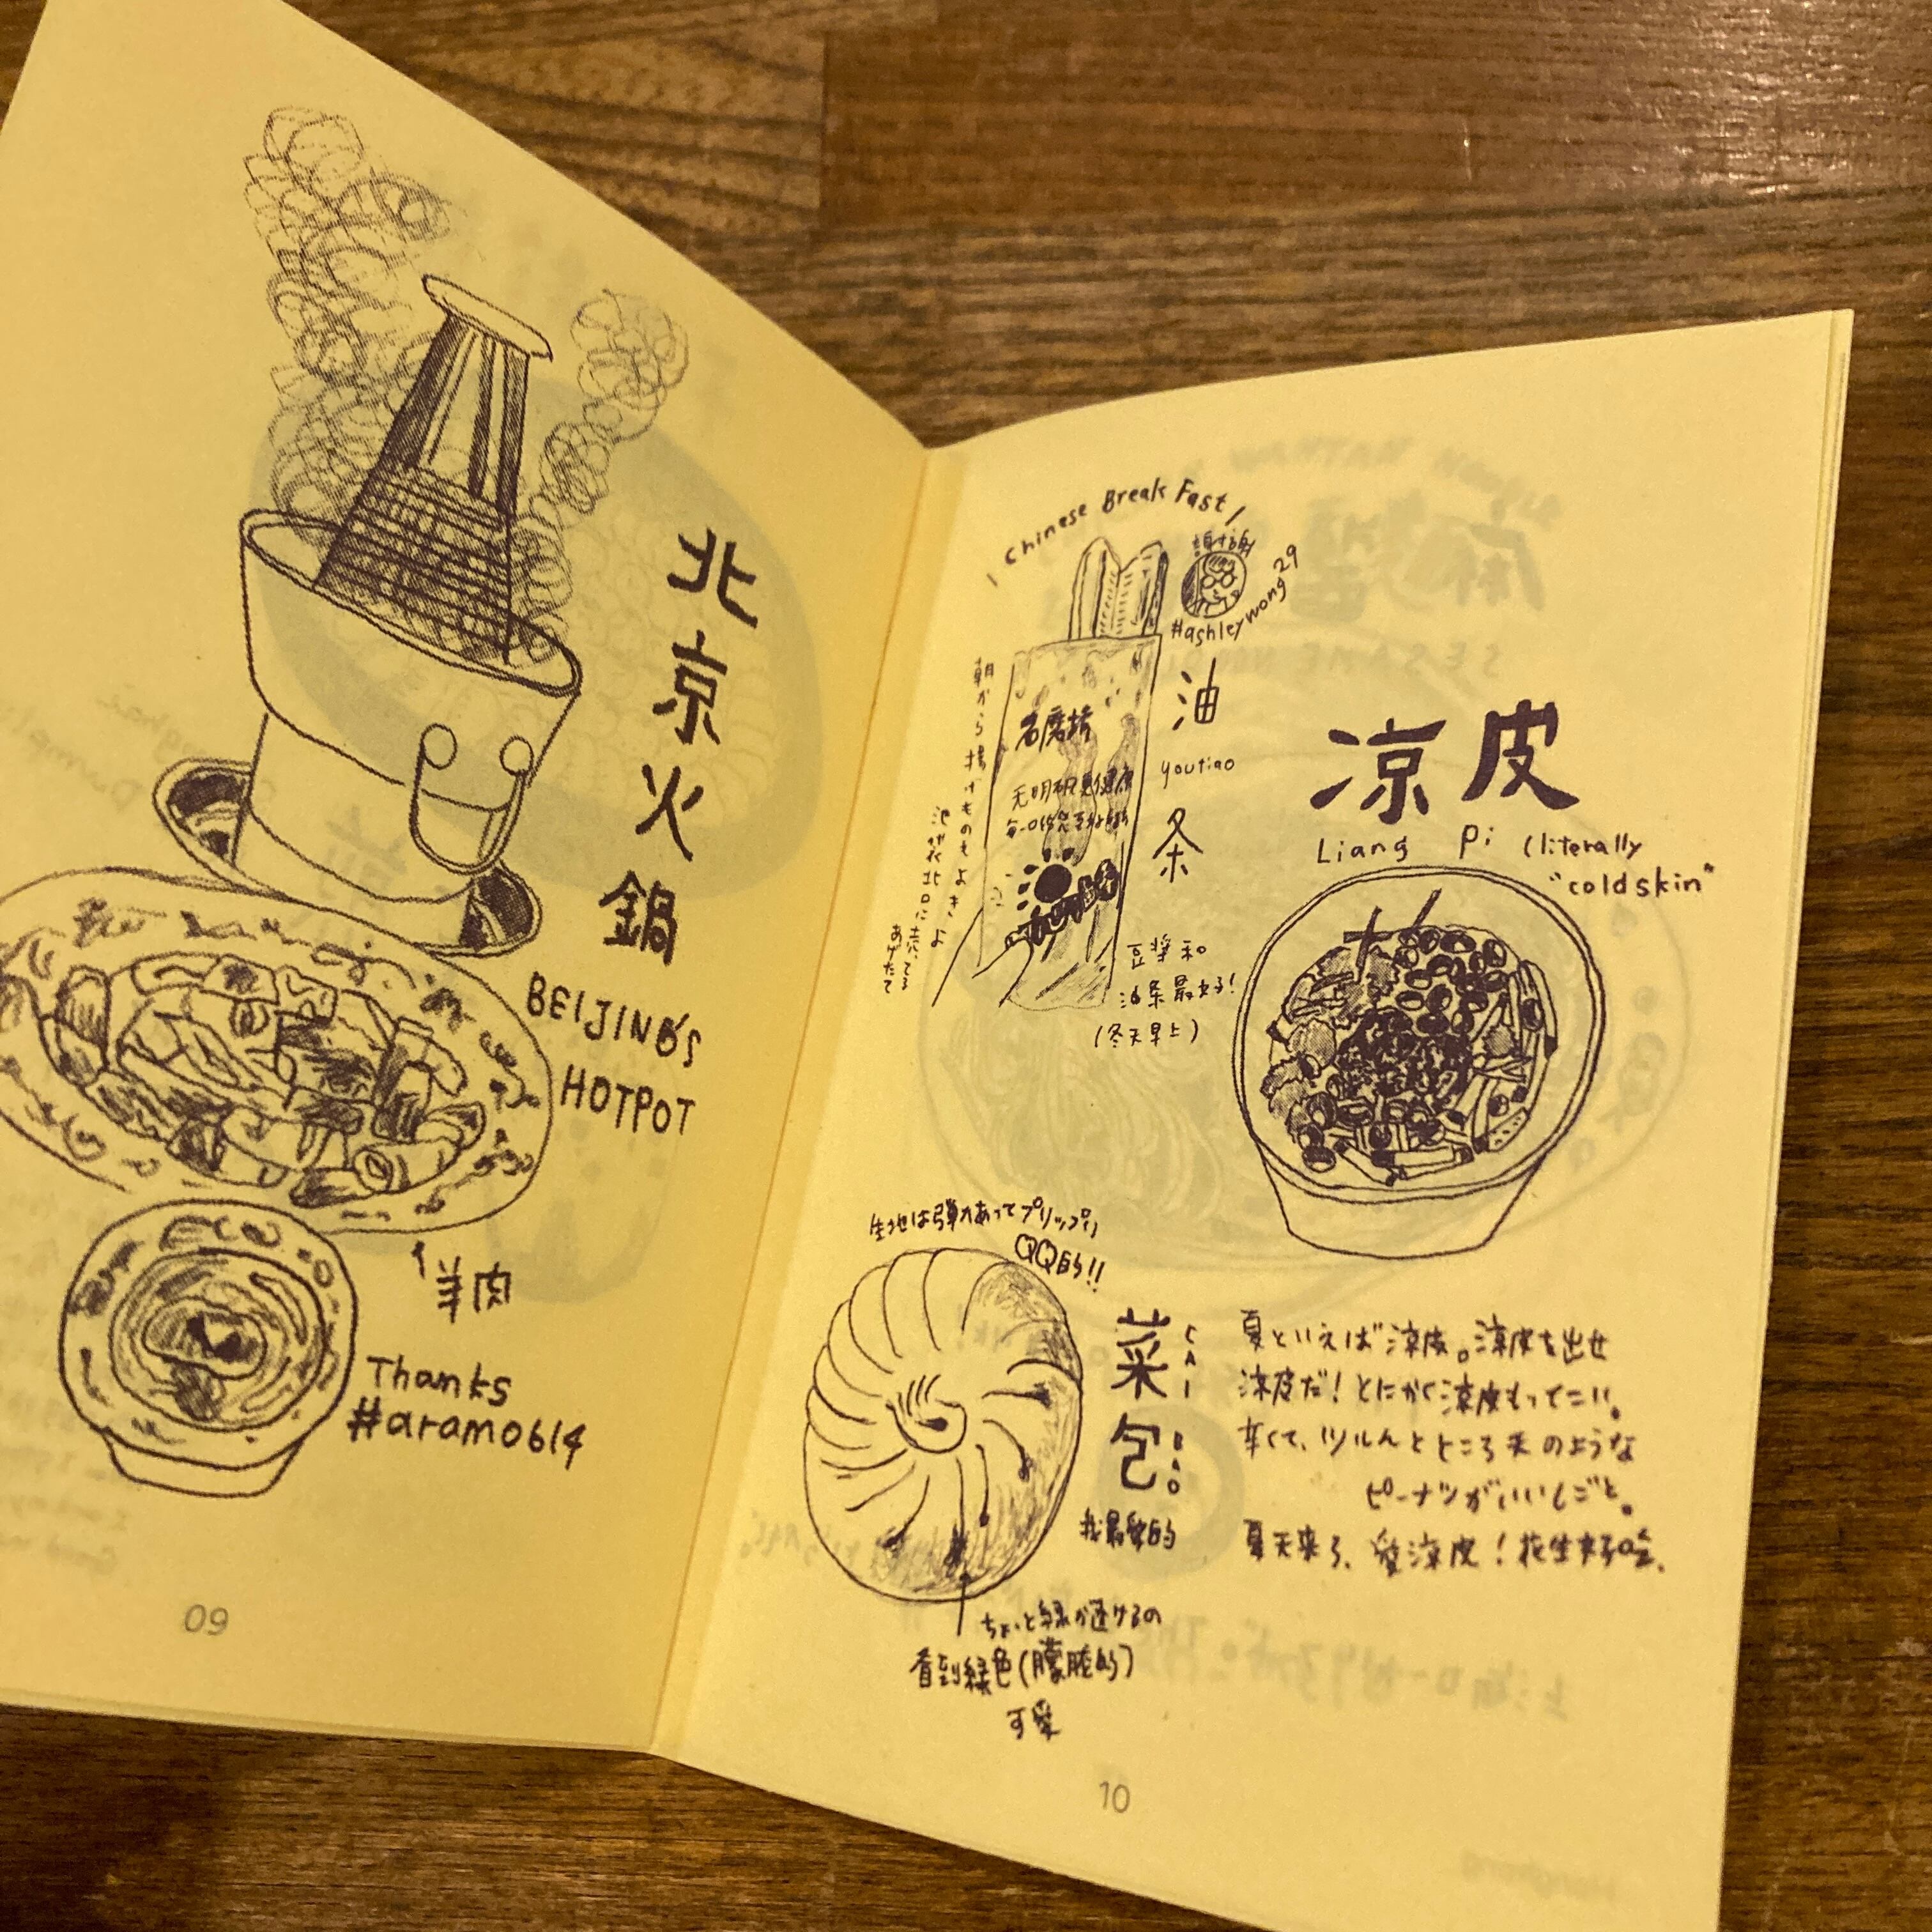 北京火鍋
BEIJING'S
HOTPOT
羊肉
Thanks
#aram0614
09
Chinese Break Fast
謝謝
#ashleywong29
油条
youtiao
朝から揚げものもよきよ
池袋北口に売ってる
あげたて
名磨坊
无明矾更健康
豆漿和
油条最好!
(冬天早上)
凉皮
Liang Pi (literally
"coldskin"
生地は弾力あってプリップリ
QQ的!!
菜包
CAI BAO
我最愛的
ちょっと緑が透けるの
看到緑色(朦朧的)
可愛
夏といえば涼皮。涼皮を出せ
涼皮だ!とにかく涼皮もってこい。
辛くて、ツルんとところ天のような
ピーナツがいいしごと。
夏天来了、愛涼皮!花生好吃、
10